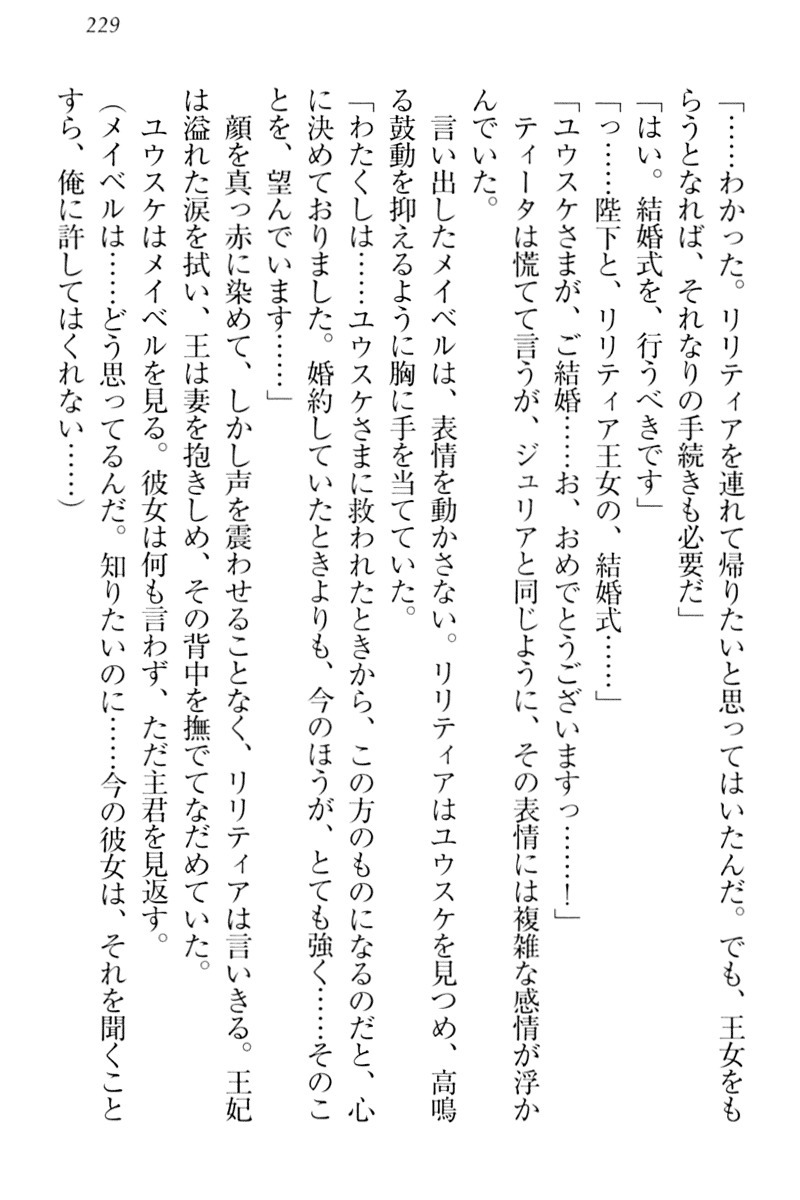 229
「……わかった。リリティアを連れて帰りたいと思ってはいたんだ。でも、王女をも
らうとなれば、それなりの手続きも必要だ」
「はい。結婚式を、行うべきです」
「っ……陛下と、リリティア王女の、結婚式……」
「ユウスケさまが、ご結婚……お、おめでとうございますっ……！」
ティータは慌てて言うが、ジュリアと同じように、その表情には複雑な感情が浮か
んでいた。
言い出したメイベルは、表情を動かさない。リリティアはユウスケを見つめ、高鳴
る鼓動を抑えるように胸に手を当てていた。
「わたくしは……ユウスケさまに救われたときから、この方のものになるのだと、心
に決めておりました。婚約していたときよりも、今のほうが、とても強く……そのこ
とを、望んでいます……」
顔を真っ赤に染めて、しかし声を震わせることなく、リリティアは言いきる。王妃
は溢れた涙を拭い、王は妻を抱きしめ、その背中を撫でてなだめていた。
ユウスケはメイベルを見る。彼女は何も言わず、ただ主君を見返す。
（メイベルは……どう思ってるんだ。知りたいのに……今の彼女は、それを聞くこと
すら、俺に許してはくれない……）